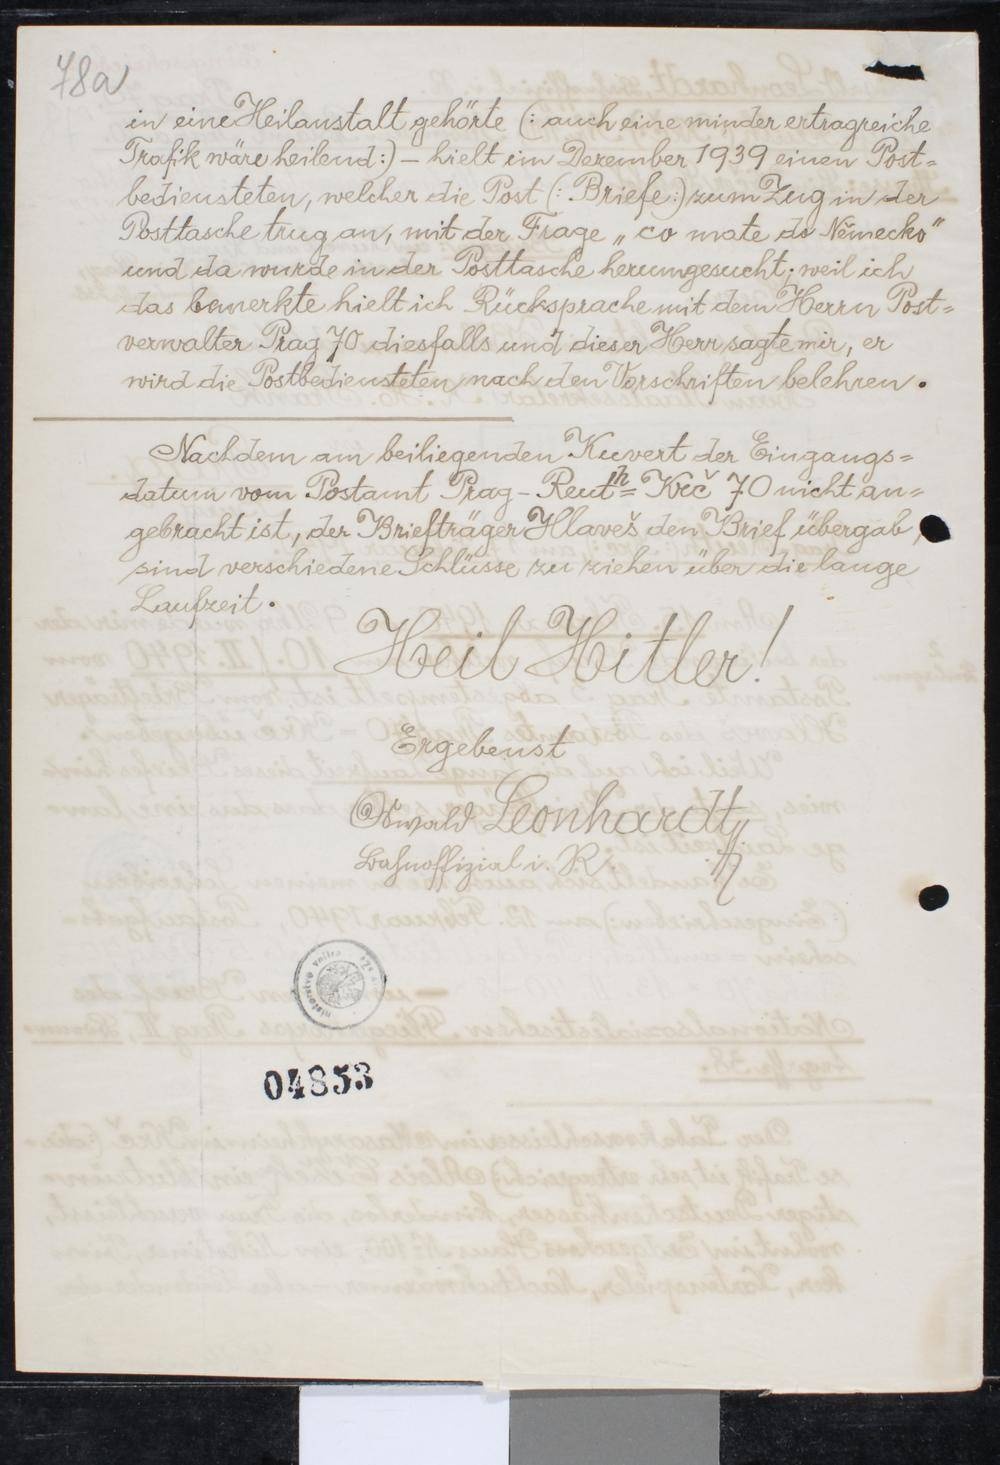 78a
in eine Heilanstalt gehörte (: auch eine minder ertragreiche
Trafik wäre heilend :) – hielt im Dezember 1939 einen Post=
bediensteten, welcher die Post (: Briefe :) zum Zug in der
Posttasche trug an, mit der Frage „co mate do Německo"
und da wurde in der Posttasche herumgesucht; weil ich
das bemerkte hielt ich Rücksprache mit dem Herrn Post=
verwalter Prag 70 diesfalls und dieser Herr sagte mir, er
wird die Postbediensteten nach den Vorschriften belehren.
Nachdem am beiliegenden Kuvert der Eingangs=
datum vom Postamt Prag - Reuth= Krč 70 nicht an=
gebracht ist, der Briefträger Hlaveš den Brief übergab,
sind verschiedene Schlüsse zu ziehen über die lange
Laufzeit.
Heil Hitler!
Ergebenst
Oswald Leonhardt
Bahnoffizial i. R.
ministerstvo vnitra
04853